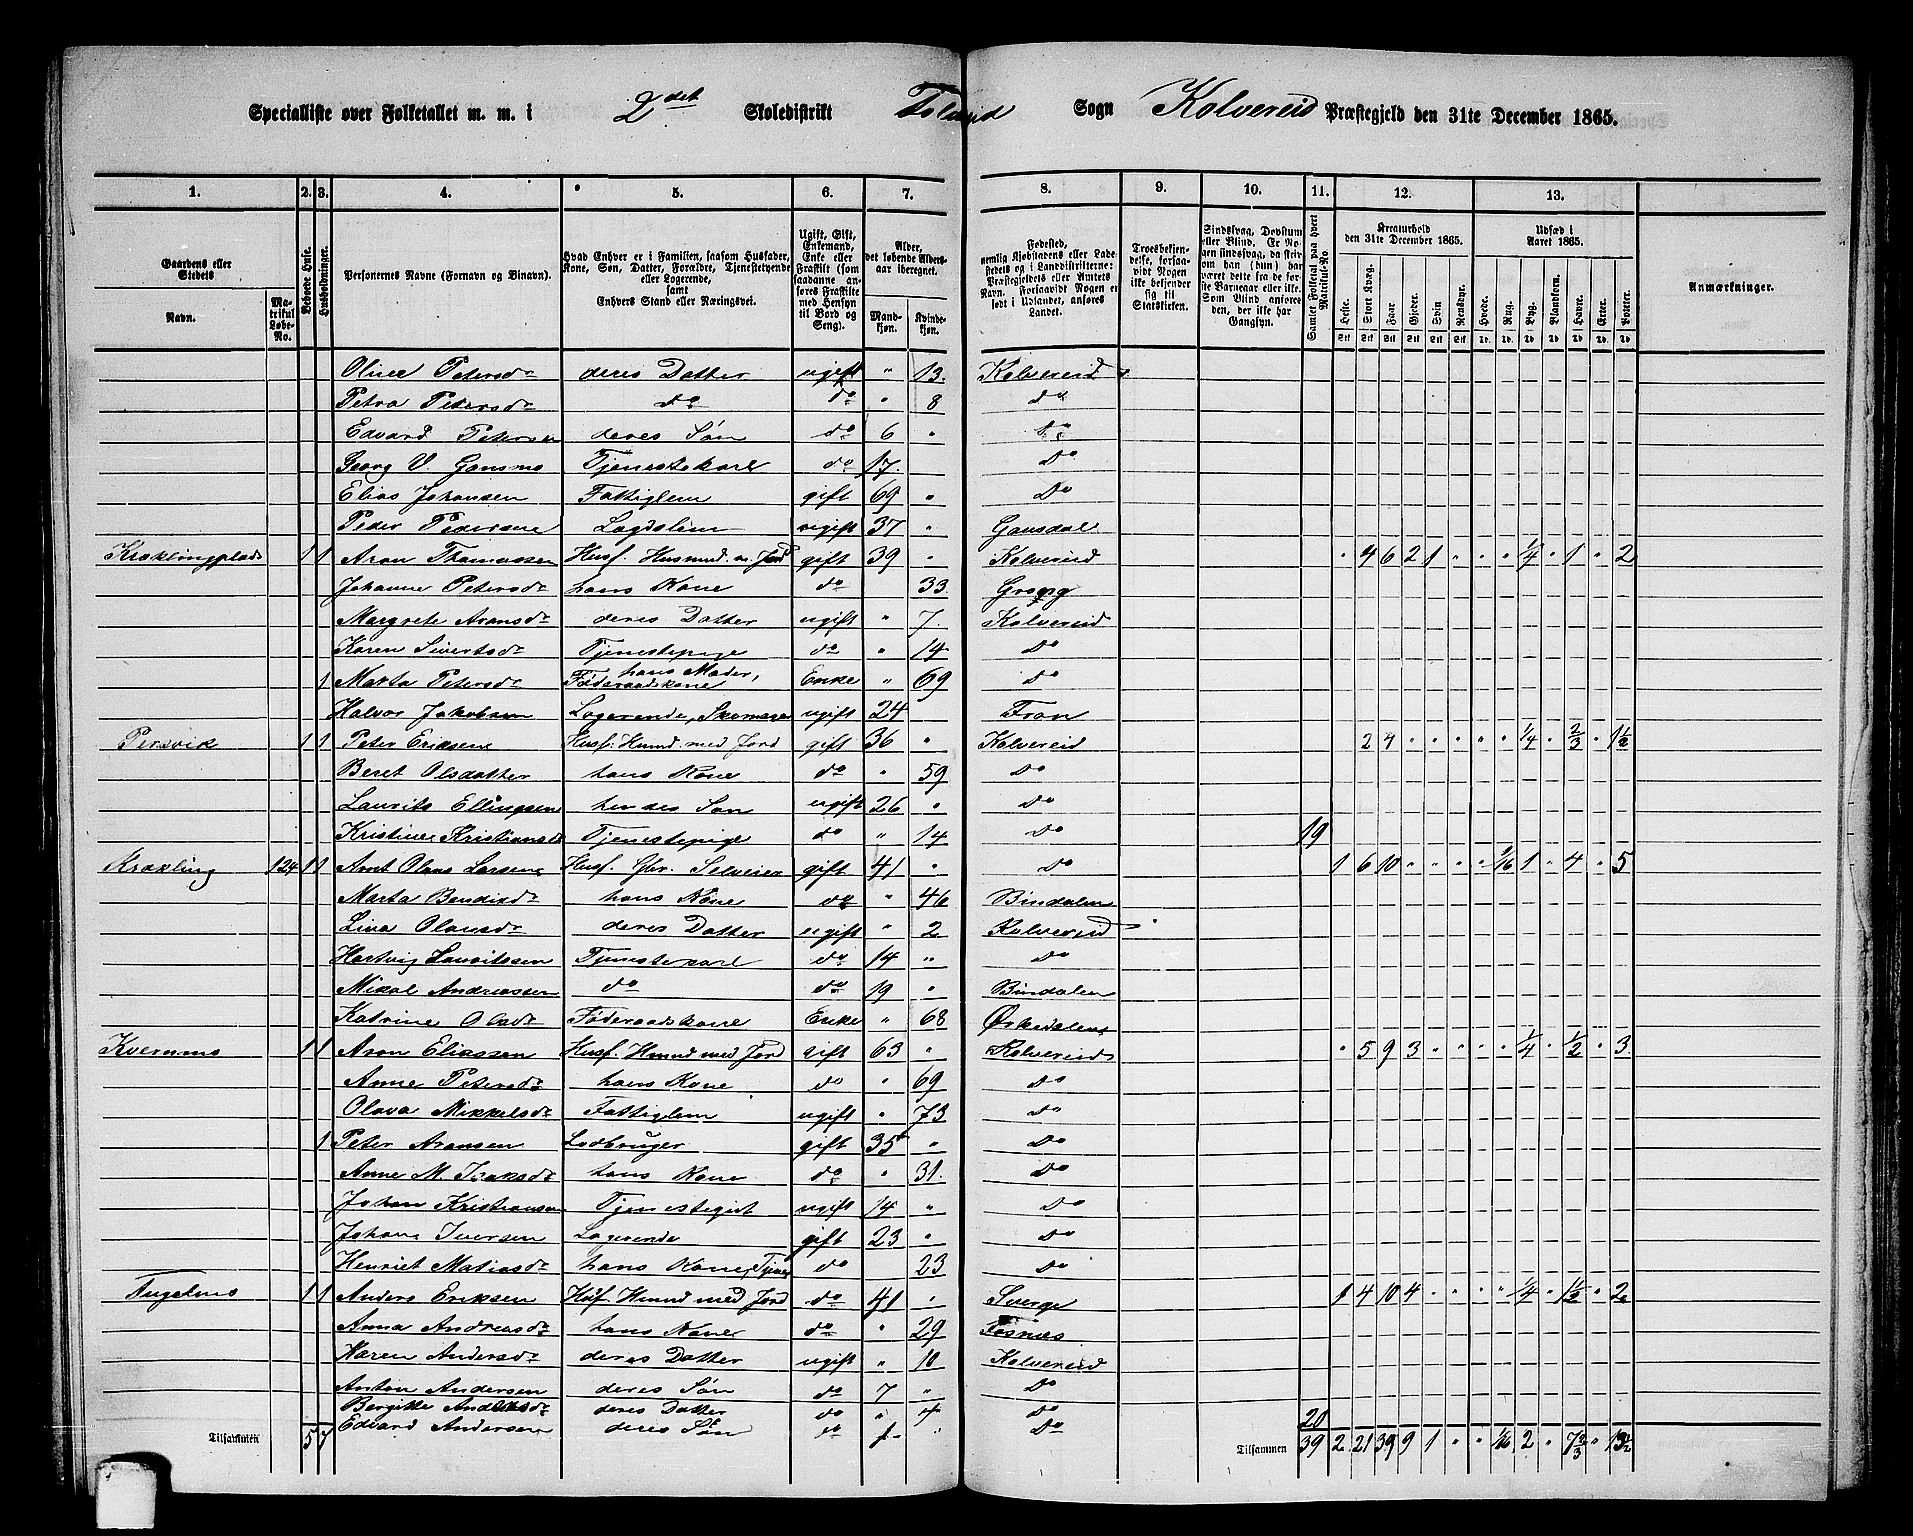 Specialliste over Folketallet m. m. i 2det Skoledistrikt Foldereid Sogn Kolvereid Præstegjeld den 31te December 1865.
1. 2. 3. 4. 5. 6. 7. 8. 9. 10. 11. 12. 13.
Gaardens eller Stedets Navn. Matrikul Løbe-No. Beboede Huse. Husholdninger. Personernes Navne (Fornavn og Binavn). Hvad Enhver er i Familien, saasom Husfader, Kone, Søn, Datter, Forældre, Tjenestetyende eller Logerende, samt Enhvers Stand eller Næringsvei. Ugift, Gift, Enkemand, Enke eller Fraskilt (som saadanne anføres Fraskilte med Hensyn til Bord og Seng). Alder, det løbende Aldersaar iberegnet. Mandkjøn. Kvindekjøn. Fødested, nemlig Kjøbstadens eller Ladestedets og i Landdistrikterne: Præstegjeldets eller Amtets Navn. Forsaavidt Nogen er født i Udlandet, anføres Landet. Troesbekjendelse, forsaavidt Nogen ikke bekjender sig til Statskirken. Sindssvag, Døvstum eller Blind. Samlet Folketal paa hvert Matrikul-No Kreaturhold den 31te December 1865. Heste. Stort Kvæg. Faar Gjeder. Svin Rensdyr. Udsæd i Aaret 1865. Hvede. Rug. Byg. Blandkorn. Havre. Erter. Poteter. Anmærkninger.
Oline Petersdr deres Datter ugift " 13. Kolvereid
Petra Petersdr do do " 8 do
Edvard Petersen deres Søn do 6 " do
Georg V. Gansmo Tjenestekarl do 17. Do
Elias Johansen Fattiglem gift 69 " Do
Peder Pedersen Lægdslem ugift 37 " Gausdal
Kræklingplads 1 1 Aron Thomassen Husf. Husmd. m. Jord gift 39 " Kolvereid " 4 6 2 1 " " " 1/4 " 1 " 2
Johanne Petersdr hans Kone do 33. Grong
Margrete Aronsdr deres Datter ugift " 7. Kolvereid
Karen Sivertsdr Tjenestepige do " 14 Do
1 Marta Petersdr hans Moder, Føderaadskone Enke " 69 Do
Halvor Jakobsen Logerende, Skomager ugift 24 Fron
Persvik 1 1 Peter Eriksen Husf. Husmd. med Jord gift 36 " Kolvereid 2 4 " " " " " 1/4 " 2/3 " 1 1/2
Beret Olsdatter hans Kone do " 59 Do
Laurits Ellingsen hendes Søn ugift 26 " Do
Kristine Kristiansdr Tjenestepige do " 14 Do 19
Krækling 124 1 1 Arnt Olaus Larsen Husf. Gbr. Selveier gift 41 " Do 1 6 10 " " " " 1/16 1 " 4 " 5
Marta Bendiksdr hans Kone do " 46 Bindalen
Lina Olausdr deres Datter ugift " 2 Kolvereid
Hartvig Lauritssen Tjenestekarl do 14 " Do
Mikal Andreassen do do 19 " Bindalen
Katrine Olsdr Føderaadskone Enke " 68 Ørkedalen
Kvernmo 1 1 Aron Eliassen Husf. Husmd med Jord gift 63 " Kolvereid " 5 9 3 " " " " 1/4 " 1/2 " 3
Anne Petersdr hans Kone do " 69 Do
Olava Mikkelsdr Fattiglem ugift " 73 Do
1 Peter Aronsen Lodbruger gift 35 " Do
Anne M. Isaksdr hans Kone do " 31. Do
Johan Kristiansen Tjenestegut ugift 14 " Do
Johan Iversen Logerende gift 23 " Do
Henriet Matiasdr hans Kone, Tjener do 23 Do
Fugelmo 1 1 Anders Eriksen Husf. Husmd med Jord do 41 " Sverge 1 4 10 4 " " " " 1/4 " 1 1/2 " 2
Anna Andreasdr hans Kone do " 29 Fosnæs
Karen Andersdr deres Datter ugift " 10 Kolvereid
Anton Andersen deres Søn do 7 " Do
Bergitte Andersdr deres Datter do " 4 Do 20
Edvard Andersen deres Søn do 1 " Do
Tilsammen 5 7 Tilsammen 39 2 21 39 9 1 " " 1/16 2 " 7 2/3 " 13 1/2